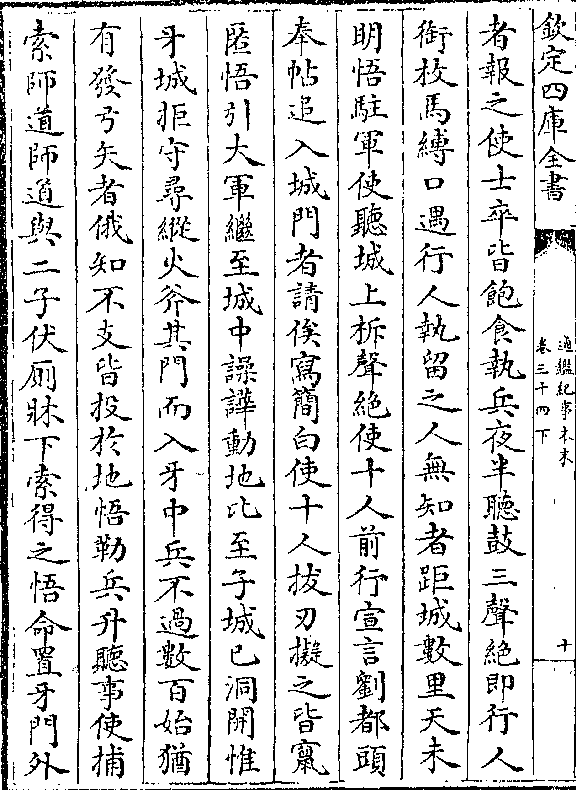 欽定四庫全書
通鑑紀事本末
卷三十四下
十
者報之使士卒皆飽食執兵夜半聽鼓三聲絶即行人
銜枚馬縛口遇行人執留之人無知者距城數里天未
明悟駐軍使聽城上柝聲絶使十人前行宣言劉都頭
奉帖追入城門者請俟寫簡白使十人拔刃擬之皆竄
匿悟引大軍繼至城中譟譁動地比至子城已洞開惟
牙城拒守尋縱火斧其門而入牙中兵不過數百始猶
有發弓矢者俄知不支皆投於地悟勒兵升聽事使捕
索師道師道與二子伏厠牀下索得之悟命置牙門外